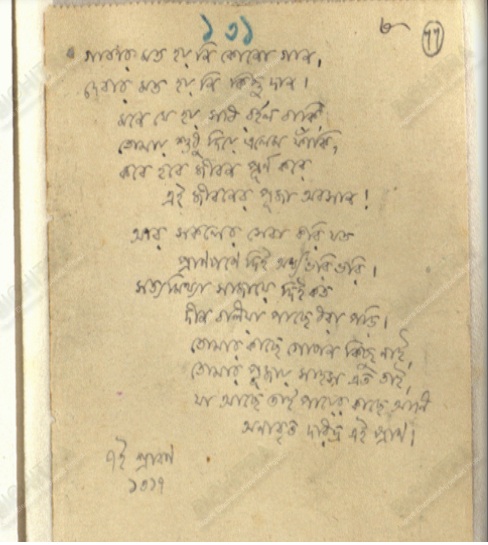 ১৩১
77
গাবার মত হয় নি কোনো গান,
দেবার মত হয় নি কিছু দান।
মনে যে হয় সবি রইল বাকি,
তোমায় শুধু দিয়ে এলেম ফাঁকি,
কবে হবে জীবন পূর্ণ করে
এই জীবনের পূজা অবসান!
আর সকলের সেবা করি যত
প্রাণপণে দিই অর্ঘ্য ভরি ভরি।
সত্যমিথ্যা সাজায়ে দিই কত
দীন বলিয়া পাছে ধরা পড়ি।
তোমার কাছে গোপন কিছু নাই,
তোমার পূজায় সাহস এত তাই,
যা আছে তাই পায়ের কাছে আনি
অনাবৃত দরিদ্র এই প্রাণ।
৭ই শ্রাবণ
১৩১৭